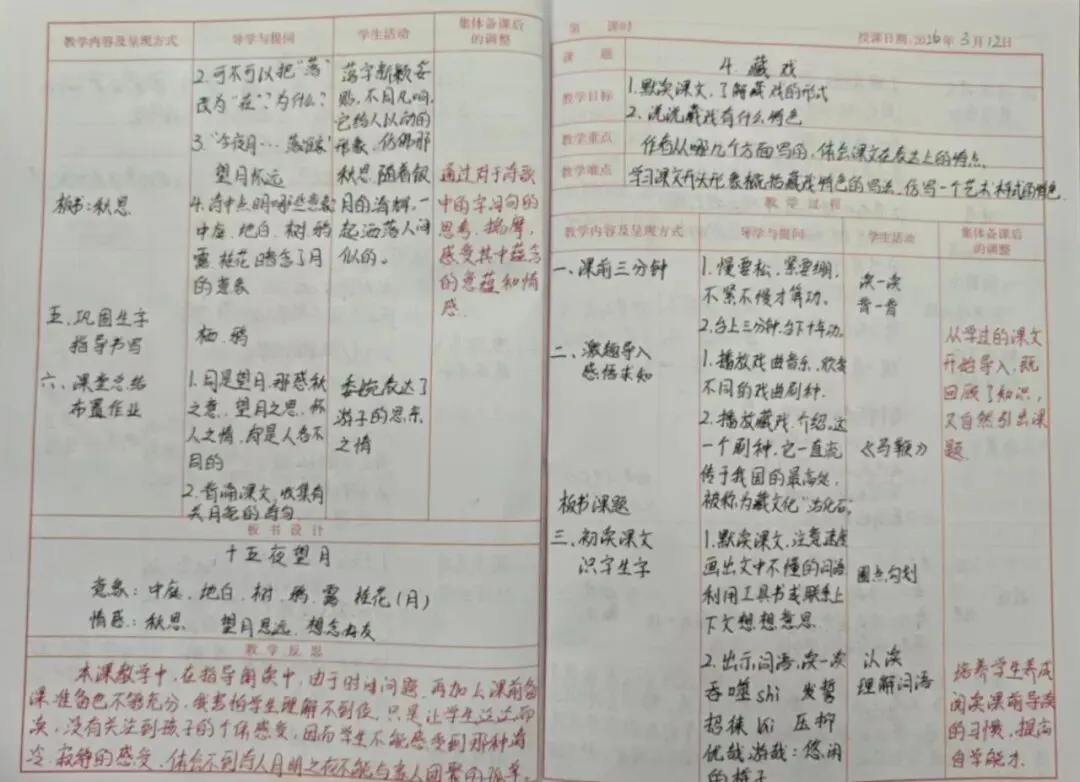 教学内容及呈现方式 导学与提问 学生活动 集体备课后的调整
2.可不可以把“落”
改为“在”?为什么?
3.“今夜月…落谁家”
望月怀远
板书:秋思
4.诗中点明哪些意象
中庭、地白、树、鸦
露、桂花 暗含了月
的意象
落字新颖妥
贴,不同凡响,
它给人以动的
形象,仿佛那
秋思随着银
月的清辉,一
起洒落人间
似的。
通过对于诗歌
中的字词句的
思考、揣摩,
感受其中蕴含
的意蕴和情
感。
五、巩固生字
指导书写
栖 鸦
六、课堂总结
布置作业
1.同是望月,那感秋
之意,望月之思,怀
人之情,却是人各不
同的
2.背诵课文,收集有
关月亮的诗句
委婉表达了
游子的思亲
之情
板书设计
十五夜望月
意象:中庭、地白、树、鸦、露 桂花(月)
情感:秋思 望月思远 想念友
教学反思
本课教学中,在指导阅读中,由于时间问题,再加上课前备
课准备也不够充分,我害怕学生理解不到位,只是让学生
读,没有关注到孩子的个体感受,因而学生不能感受到那种清
冷、寂静的感受,体会不到诗人月明之夜不能与家人团聚的孤单。
第 课时
授课日期:2026年3月12日
课题 4.藏戏
教学目标 1.默读课文,了解藏戏的形式
2.说说藏戏有什么特色
教学重点 作者从哪几个方面写的,体会课文在表达上的特点。
教学难点 学习课文开头形象概括藏戏特色的写法,仿写一个艺术样式的特色
教学过程
教学内容及呈现方式 导学与提问 学生活动 集体备课后的调整
一、课前三分钟
1.慢要松,紧要绷,
不紧不慢才算功。
2.台上三分钟,台下十年功。
读一读
背一背
二、激趣导入
感悟求知
1.播放戏曲音乐,欣赏
不同的戏曲剧种.
2.播放藏戏,介绍,这
一个剧种,它一直流
传于我国的最高处,
被称为藏文化“活化石”
《马鞭》
板书课题
从学过的课文
开始导入,既
回顾了知识,
又自然引出课
题.
三、初读课文
识字生字
1.默读课文,注意速度
画出文中不懂的词语
利用工具书或联系上
下文想想意思.
圈点勾划
2.出示词语,读一读
吞噬shi 发誓
招徕lái 压抑
优哉游哉:悠闲
的样子
认读
理解词语
培养学生养成
阅读课前导读
的习惯,提高
自学能力.